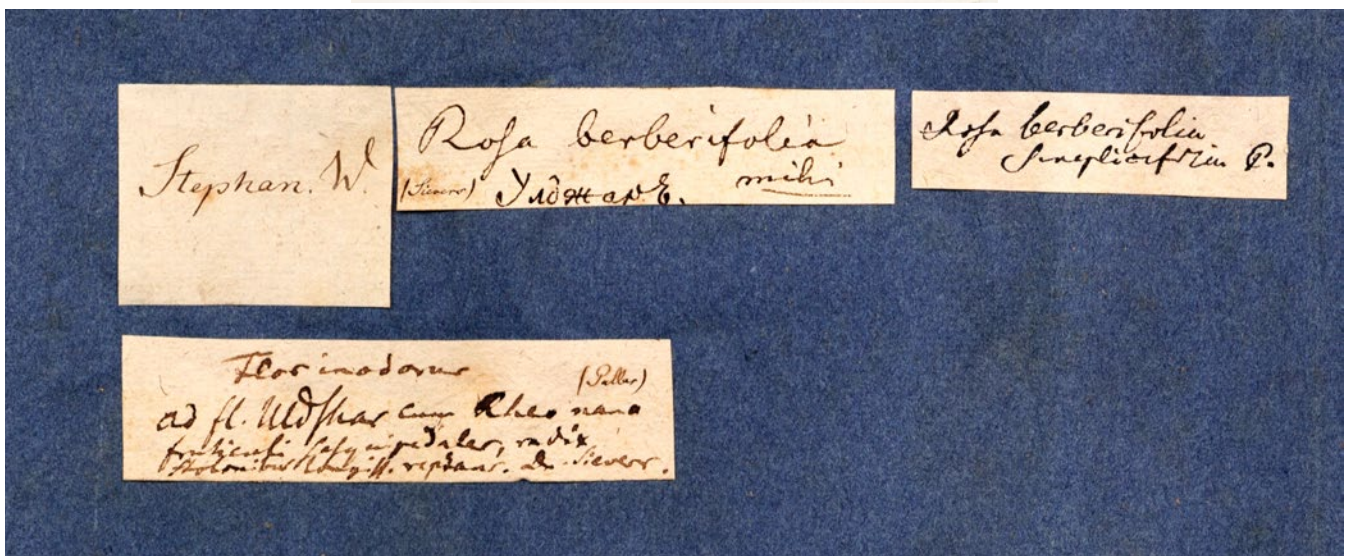 Stephan. W.
Rosa berberifolia
(Sievers) Улджаръ. mihi
Rosa berberifolia
simplicifolia P.
Flos inodorus (Pallas)
ad fl. Uldshar cum Rheo nano
fruticuli sesquipedales, radix
stolonibus longiss. reptans. Dr. Sievers.